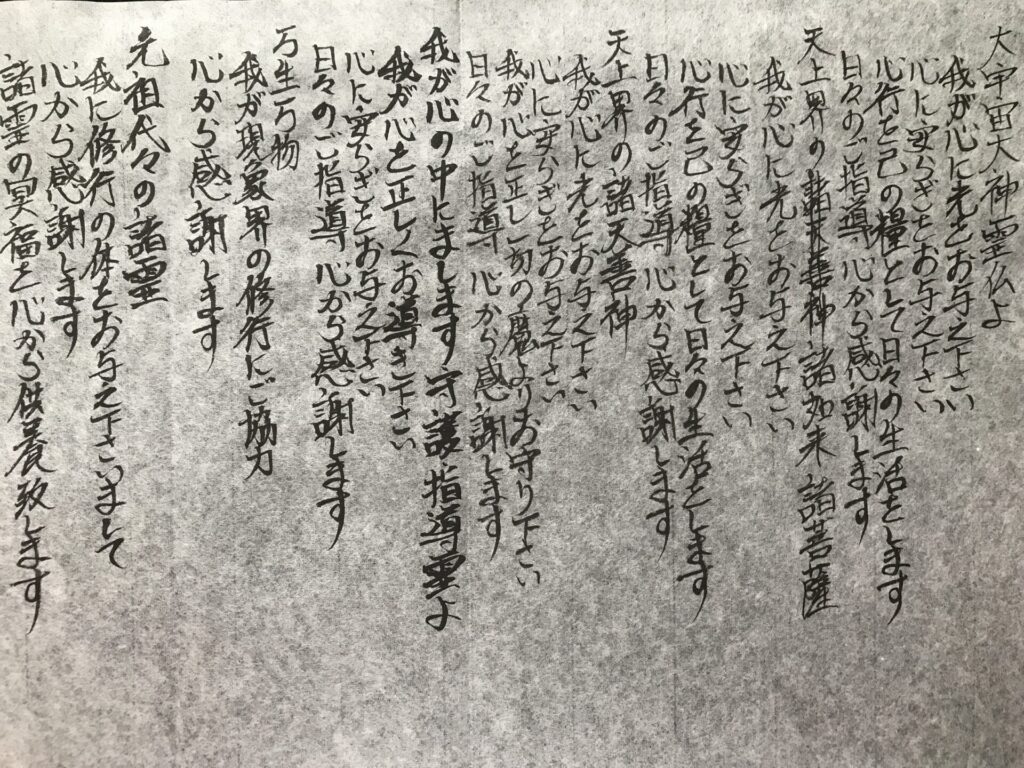 大宇宙大神霊仏よ
我が心に光とお与え下さい
心に安らぎとお与え下さい
心行を己の糧として日々の生活をします
日々のご指導 心から感謝します
天上界の諸如来 諸菩薩
我が心に光とお与え下さい
心に安らぎとお与え下さい
心行を己の糧として日々の生活とします
日々のご指導 心から感謝します
天上界の諸天善神
我が心に光とお与え下さい
心に安らぎとお与え下さい
我が心を正し一切の魔よりお守り下さい
日々のご指導 心から感謝します
我が心の中にまします守護指導霊よ
我が心を正しくお導き下さい
心に安らぎとお与え下さい
日々のご指導 心から感謝します
万生万物
我が現象界の修行にご協力
心から感謝します
先祖代々の諸霊
我に修行の体とお与え下さいまして
心から感謝します
諸霊の冥福を心から供養致します